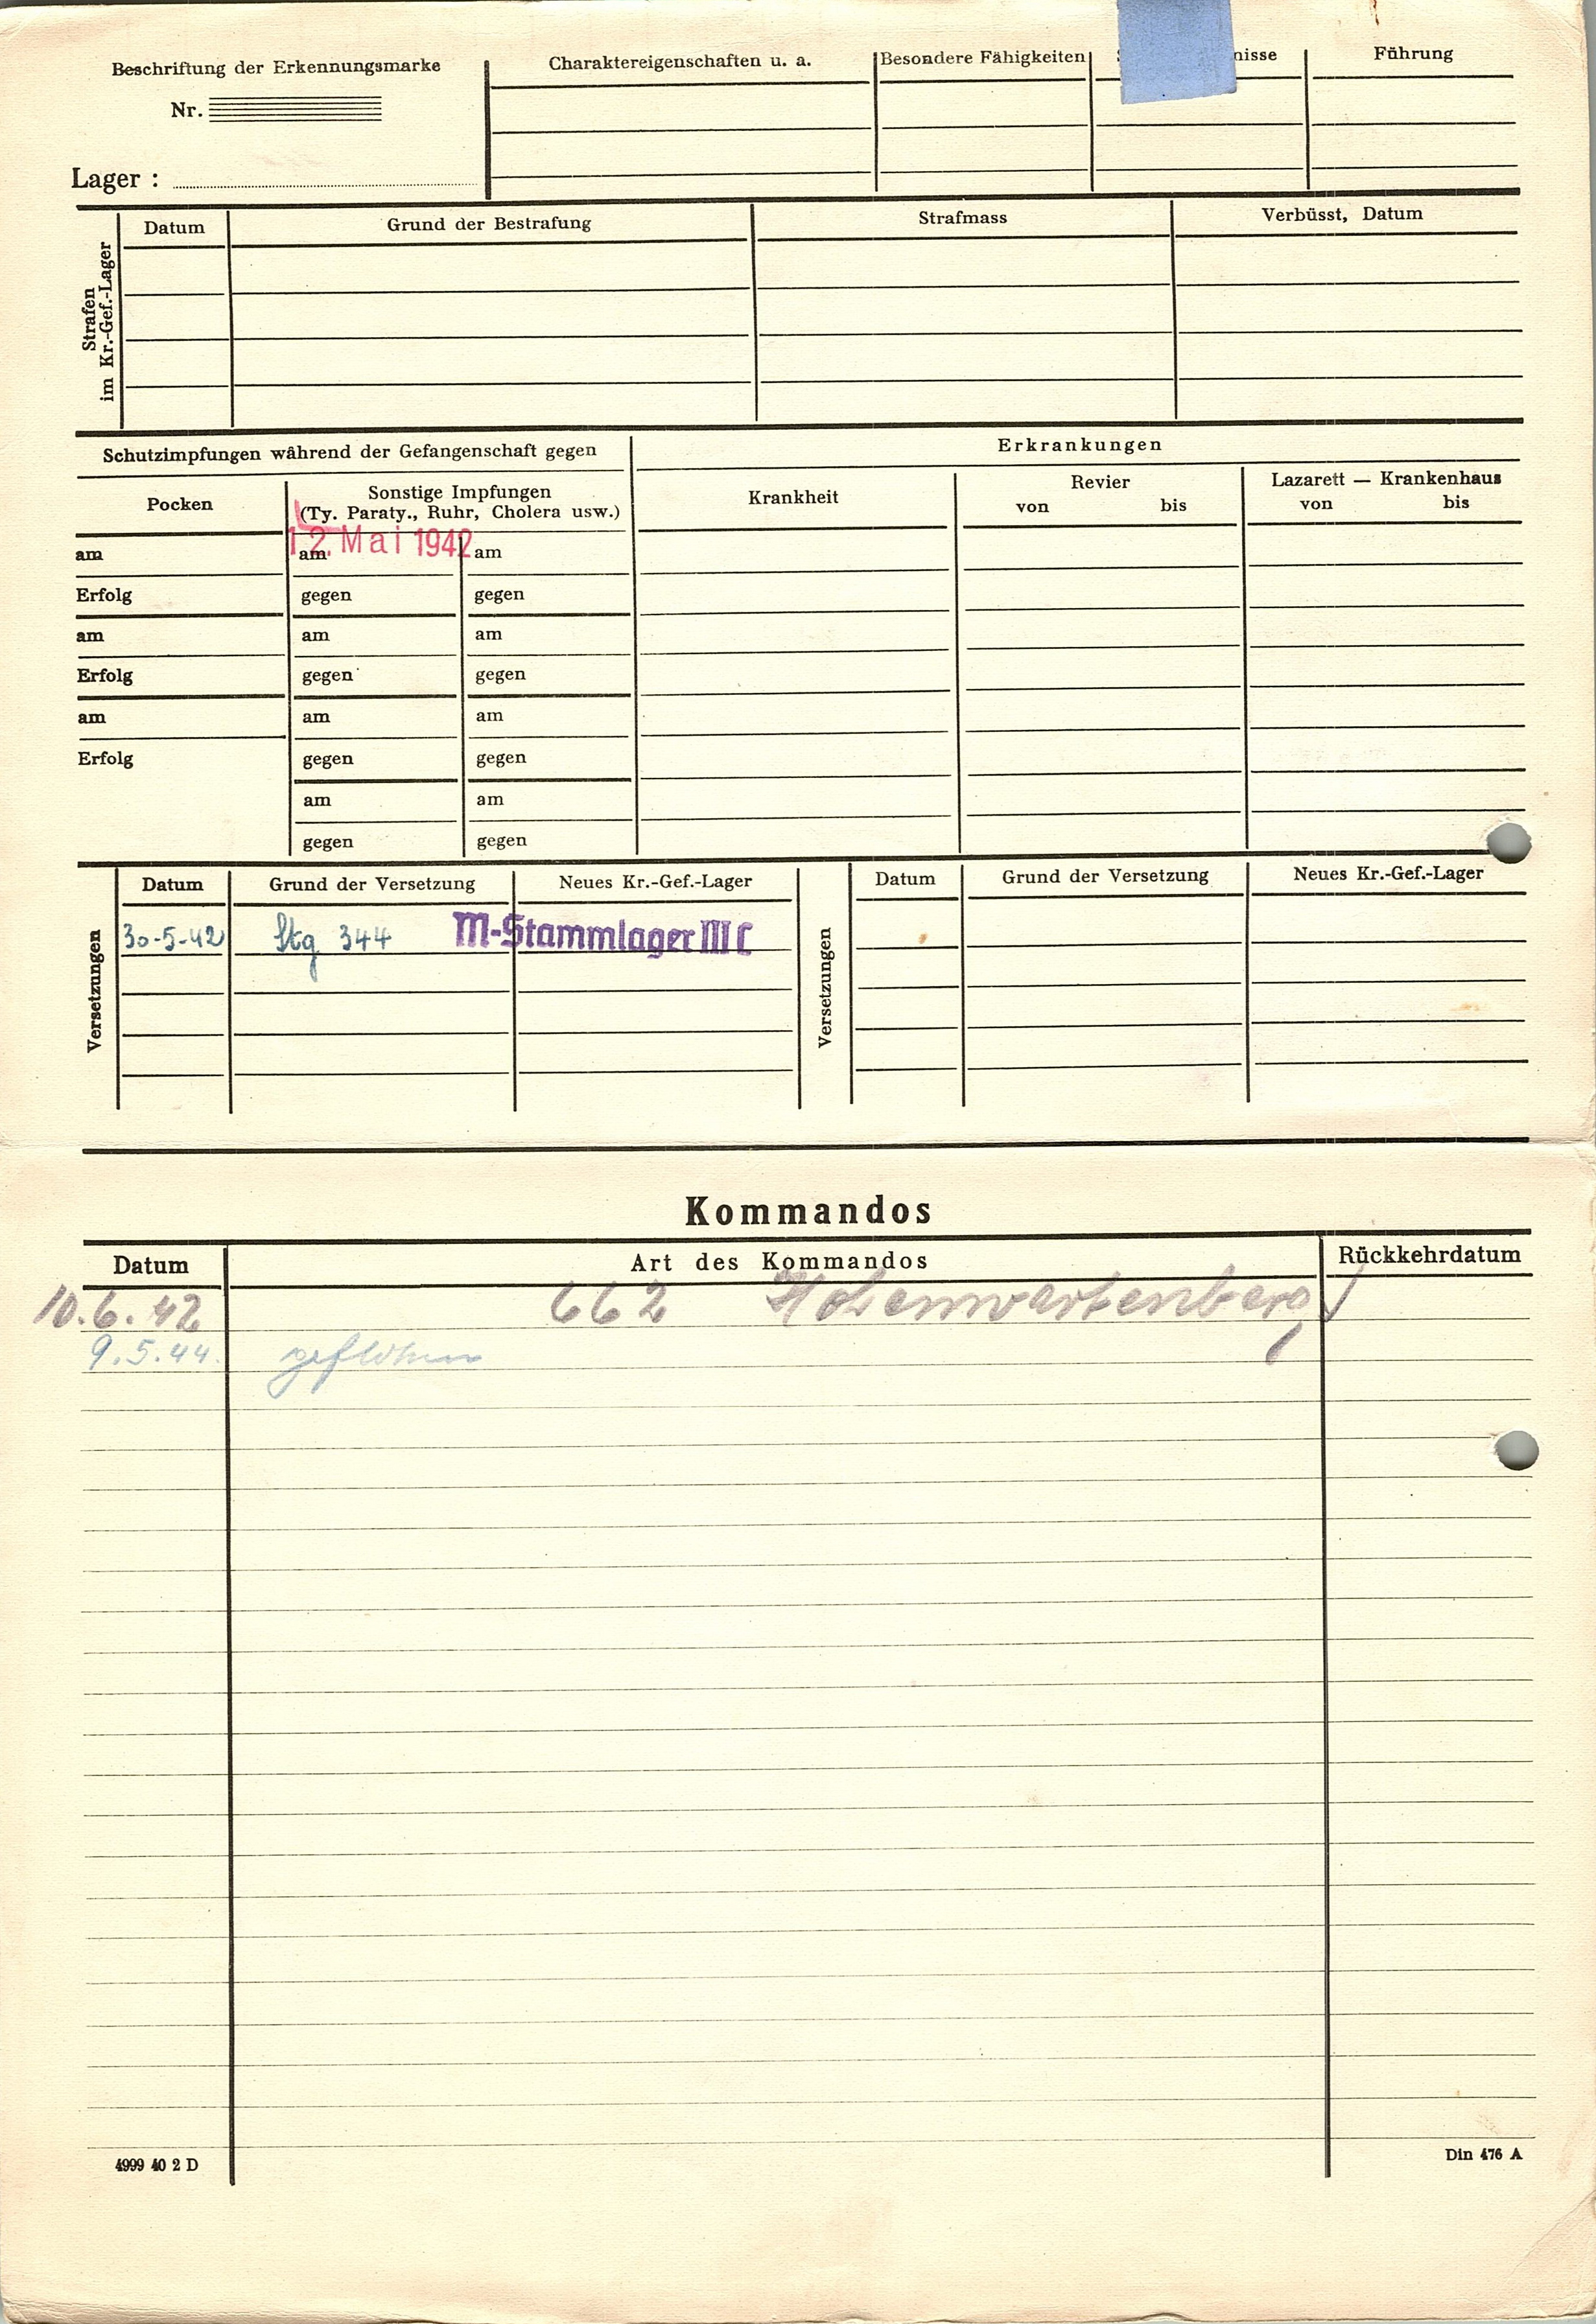 Beschriftung der Erkennungsmarke
Nr.
Lager :
Charaktereigenschaften u. a.
Besondere Fähigkeiten
nisse
Führung
Strafen
im Kr.-Gef.-Lager
Datum
Grund der Bestrafung
Strafmass
Verbüsst, Datum
Schutzimpfungen während der Gefangenschaft gegen
Erkrankungen
Pocken
Sonstige Impfungen
(Ty. Paraty., Ruhr, Cholera usw.)
Krankheit
Revier
von bis
Lazarett — Krankenhaus
von bis
12. Mai 1942
am am am
Erfolg gegen gegen
am am am
Erfolg gegen gegen
am am am
Erfolg gegen gegen
am am
gegen gegen
Versetzungen
Datum Grund der Versetzung Neues Kr.-Gef.-Lager
30-5-42 Stg 344 M-Stammlager III C
Versetzungen
Datum Grund der Versetzung Neues Kr.-Gef.-Lager
Kommandos
Datum Art des Kommandos Rückkehrdatum
10.6.42 662 Hohenwartenberg
9.5.44. geflohen
4999 40 2 D
Din 476 A